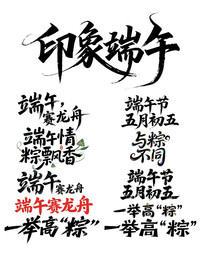 印象端午
端午，
赛龙舟
端午情
粽飘香
端午赛龙舟
端午赛龙舟
一举高“粽”
端午节
五月初五
与粽
不同
端午节
五月初五
一举高“粽”
一举高“粽”